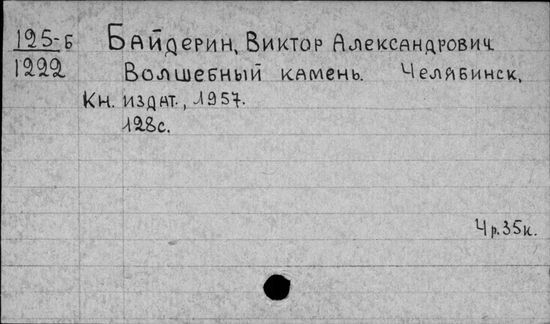 125-Б Байдерин, Виктор Александрович.
1222 Волшебный камень. Челябинск,
Кн. издат., 1957.
128с.
4р.35к.